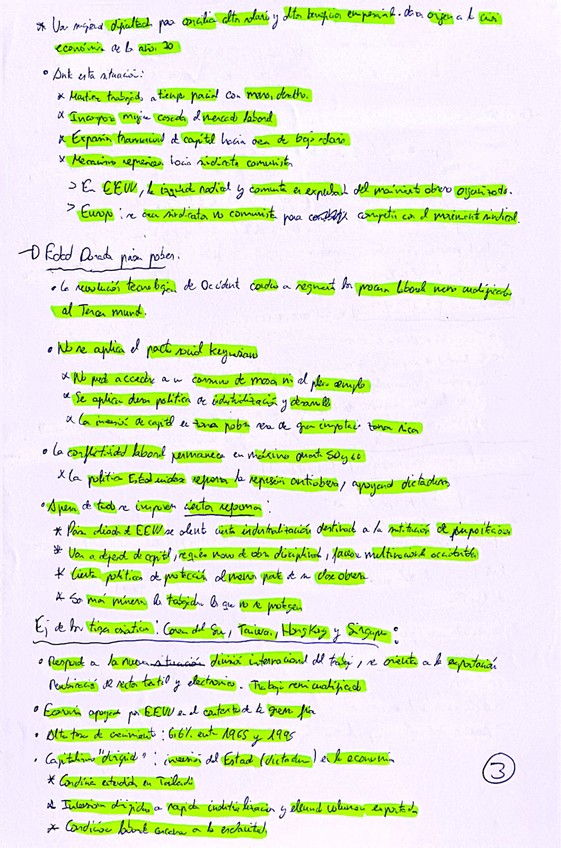 * Una mayor dificultad para conciliar alto salario y alto beneficio empresarial dará origen a la crisis
económica de los años 70
• Ante esta situación:
* trabajo a tiempo parcial con menos derecho.
* Incorpora mujer casada al mercado laboral
* Expansión transnacional de capital hacia área de bajo salario
* Mecanismo represivo hacia sindicato comunista
> En EEUU, la izquierda radical y comunista es expulsada del movimiento obrero organizado.
> Europa: se crea sindicato no comunista para competir con el movimiento sindical.
→ Edad Dorada países pobres.
• La revolución tecnológica de Occidente condujo a segmentar los procesos laboral menos cualificado
al Tercer mundo.
• No se aplica el pacto social keynesiano
* No puede acceder a un consumo de masa ni al pleno empleo
* Se aplica política de industrialización y desarrollo
* La inversión de capital en zona pobre sera de gran importe zona rica
• La conflictividad laboral permanece en máximo durante 50 y 60
* La política Estadounidense refuerza la represión antiobrera, apoyando dictaduras
• A pesar de todo se imponen ciertas reformas:
* Para aliado de EEUU se alienta cierta industrialización destinada a la sustitución de importaciones
* Van a depender de capital, requiere mano de obra disciplinada, favorece multinacional occidental
* Cierta política de protección al menos parte de su clase obrera
* Son más minoría los trabajadores los que no se protegen
Ej de los tigres asiáticos: Corea del Sur, Taiwan, Hong Kong y Singapur:
• Responde a la nueva división internacional del trabajo, se orienta a la exportación
de sector textil y electrónico. Trabajo semicualificado
• Economía apoyada por EEUU en el contexto de la guerra fría
• Alta tasa de crecimiento: 6.6% entre 1965 y 1995
• Capitalismo "dirigido": inversión del Estado (dictadura) en la economía
* Condición extendida en Tailandia
* Inversión dirigida a rápida industrialización y elevado volumen exportador
* Condiciones laborales cercanas a la esclavitud
3